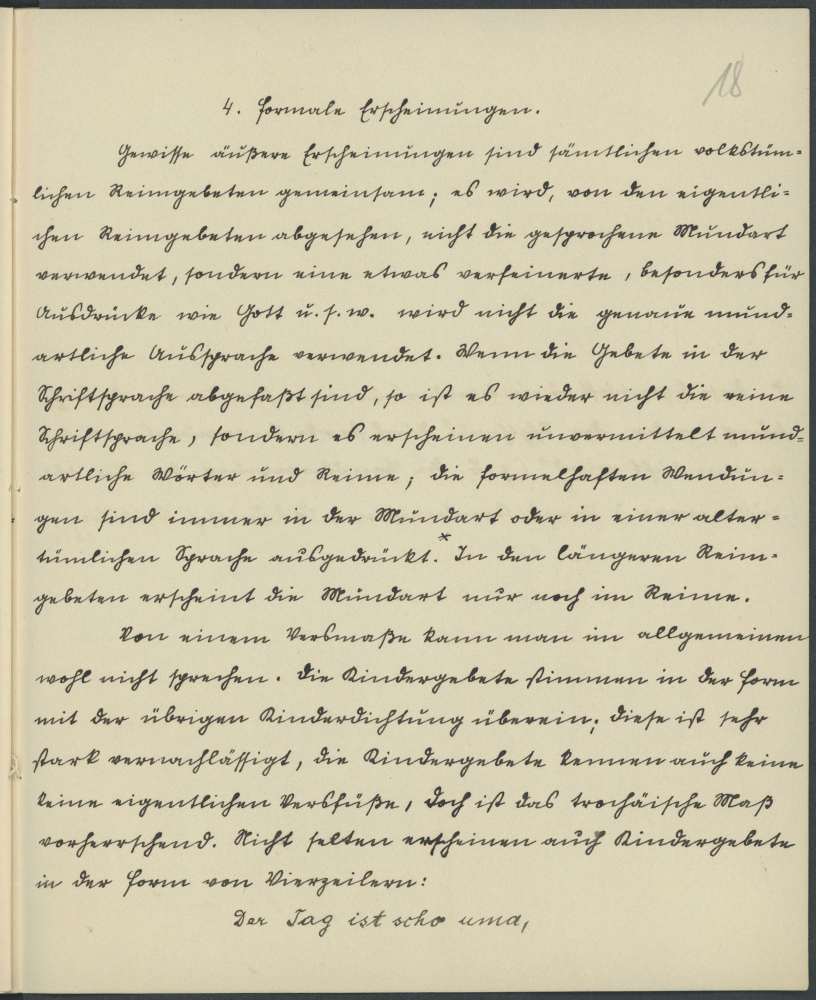 18
4. Formale Erscheinungen.
Gewisse äußere Erscheinungen sind sämtlichen volkstüm-
lichen Reimgebeten gemeinsam; es wird, von den eigentli-
chen Reimgebeten abgesehen, nicht die gesprochene Mundart
verwendet, sondern eine etwas verfeinerte, besonders für
Ausdrücke wie Gott u. s. w. wird nicht die genaue mund-
artliche Aussprache verwendet. Wenn die Gebete in der
Schriftsprache abgefaßt sind, so ist es wieder nicht die reine
Schriftsprache, sondern es erscheinen unvermittelt mund-
artliche Wörter und Reime; die formelhaften Wendun-
gen sind immer in der Mundart oder in einer alter-
tümlichen Sprache ausgedrückt.* In den längeren Reim-
gebeten erscheint die Mundart nur noch im Reime.
Von einem Versmaße kann man im allgemeinen
wohl nicht sprechen. Die Kindergebete stimmen in der Form
mit der übrigen Kinderdichtung überein; diese ist sehr
stark vernachlässigt, die Kindergebete kennen auch keine
keine eigentlichen Versfüße, doch ist das trochäische Maß
vorherrschend. Nicht selten erscheinen auch Kindergebete
in der Form von Vierzeilern:
Der Tag ist scho uma,